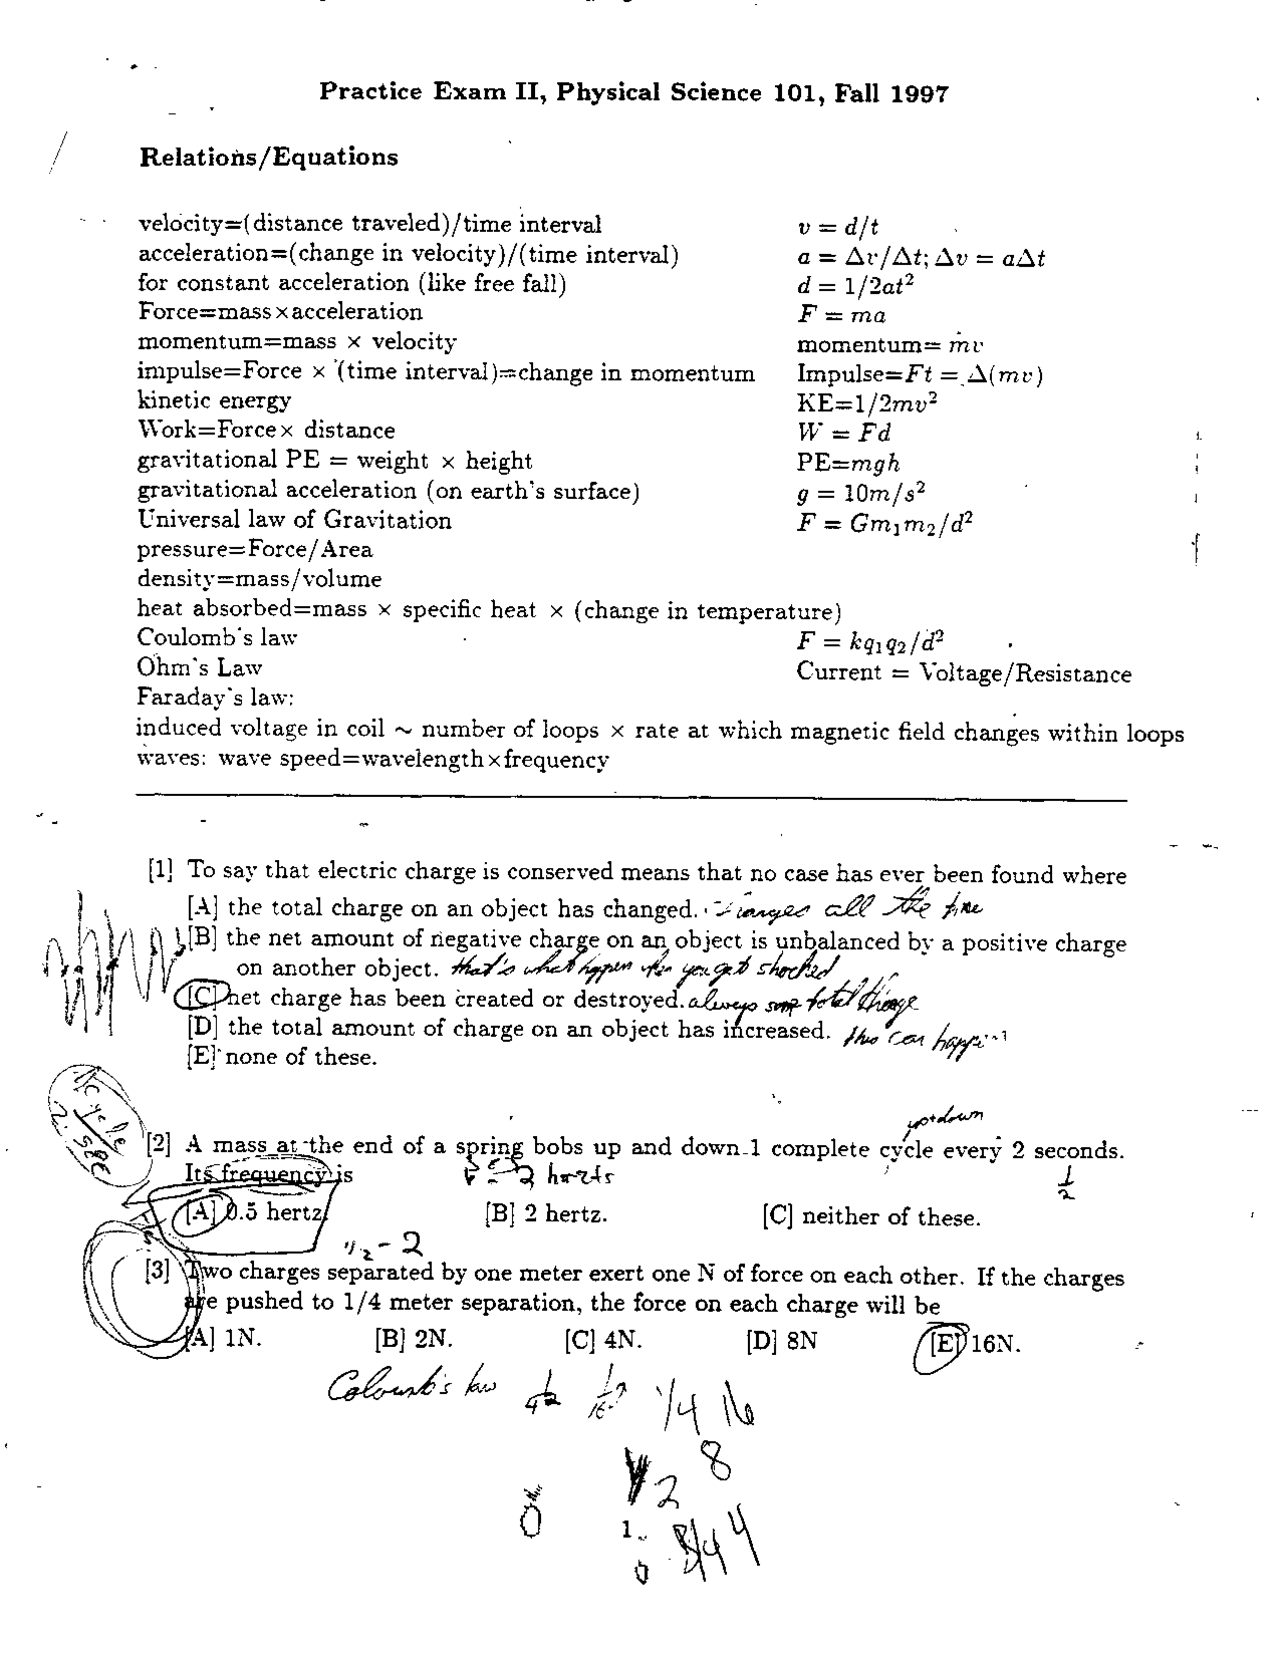 Practice Exam II, Physical Science 101, Fall 1997
Relations/Equations
velocity=(distance traveled)/time interval v = d/t
acceleration=(change in velocity)/(time interval) a = Δv/Δt; Δv = aΔt
for constant acceleration (like free fall) d = 1/2at²
Force=mass×acceleration F = ma
momentum=mass × velocity momentum= mv
impulse=Force × (time interval)=change in momentum Impulse=Ft = Δ(mv)
kinetic energy KE=1/2mv²
Work=Force× distance W = Fd
gravitational PE = weight × height PE=mgh
gravitational acceleration (on earth's surface) g = 10m/s²
Universal law of Gravitation F = Gm₁m₂/d²
pressure=Force/Area
density=mass/volume
heat absorbed=mass × specific heat × (change in temperature)
Coulomb's law F = kq₁q₂/d²
Ohm's Law Current = Voltage/Resistance
Faraday's law:
induced voltage in coil ~ number of loops × rate at which magnetic field changes within loops
waves: wave speed=wavelength×frequency
[1] To say that electric charge is conserved means that no case has ever been found where
[A] the total charge on an object has changed. all the time
[B] the net amount of negative charge on an object is unbalanced by a positive charge
on another object. that's what happen when you get shocked
[C] net charge has been created or destroyed. always some total
[D] the total amount of charge on an object has increased. this can happen
[E] none of these.
cycle
2 sec
up+down
[2] A mass at the end of a spring bobs up and down 1 complete cycle every 2 seconds.
Its frequency is 2 hertz 1/2
[A] 0.5 hertz [B] 2 hertz. [C] neither of these.
1/2 - 2
[3] Two charges separated by one meter exert one N of force on each other. If the charges
are pushed to 1/4 meter separation, the force on each charge will be
[A] 1N. [B] 2N. [C] 4N. [D] 8N [E] 16N.
Coloumb's law 1/4 16
1/2 8
0 1 4
0